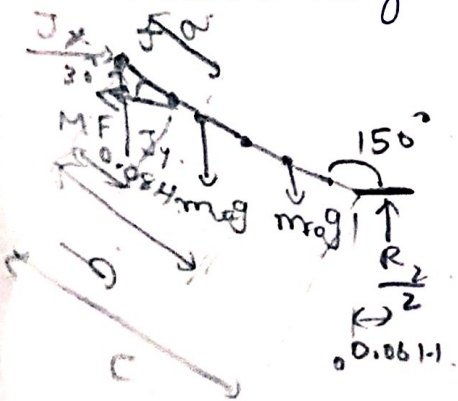 Jx
a
30°
MF
Jy
0.084
mag
mrag
150°
R2/2
0.0611
b
c